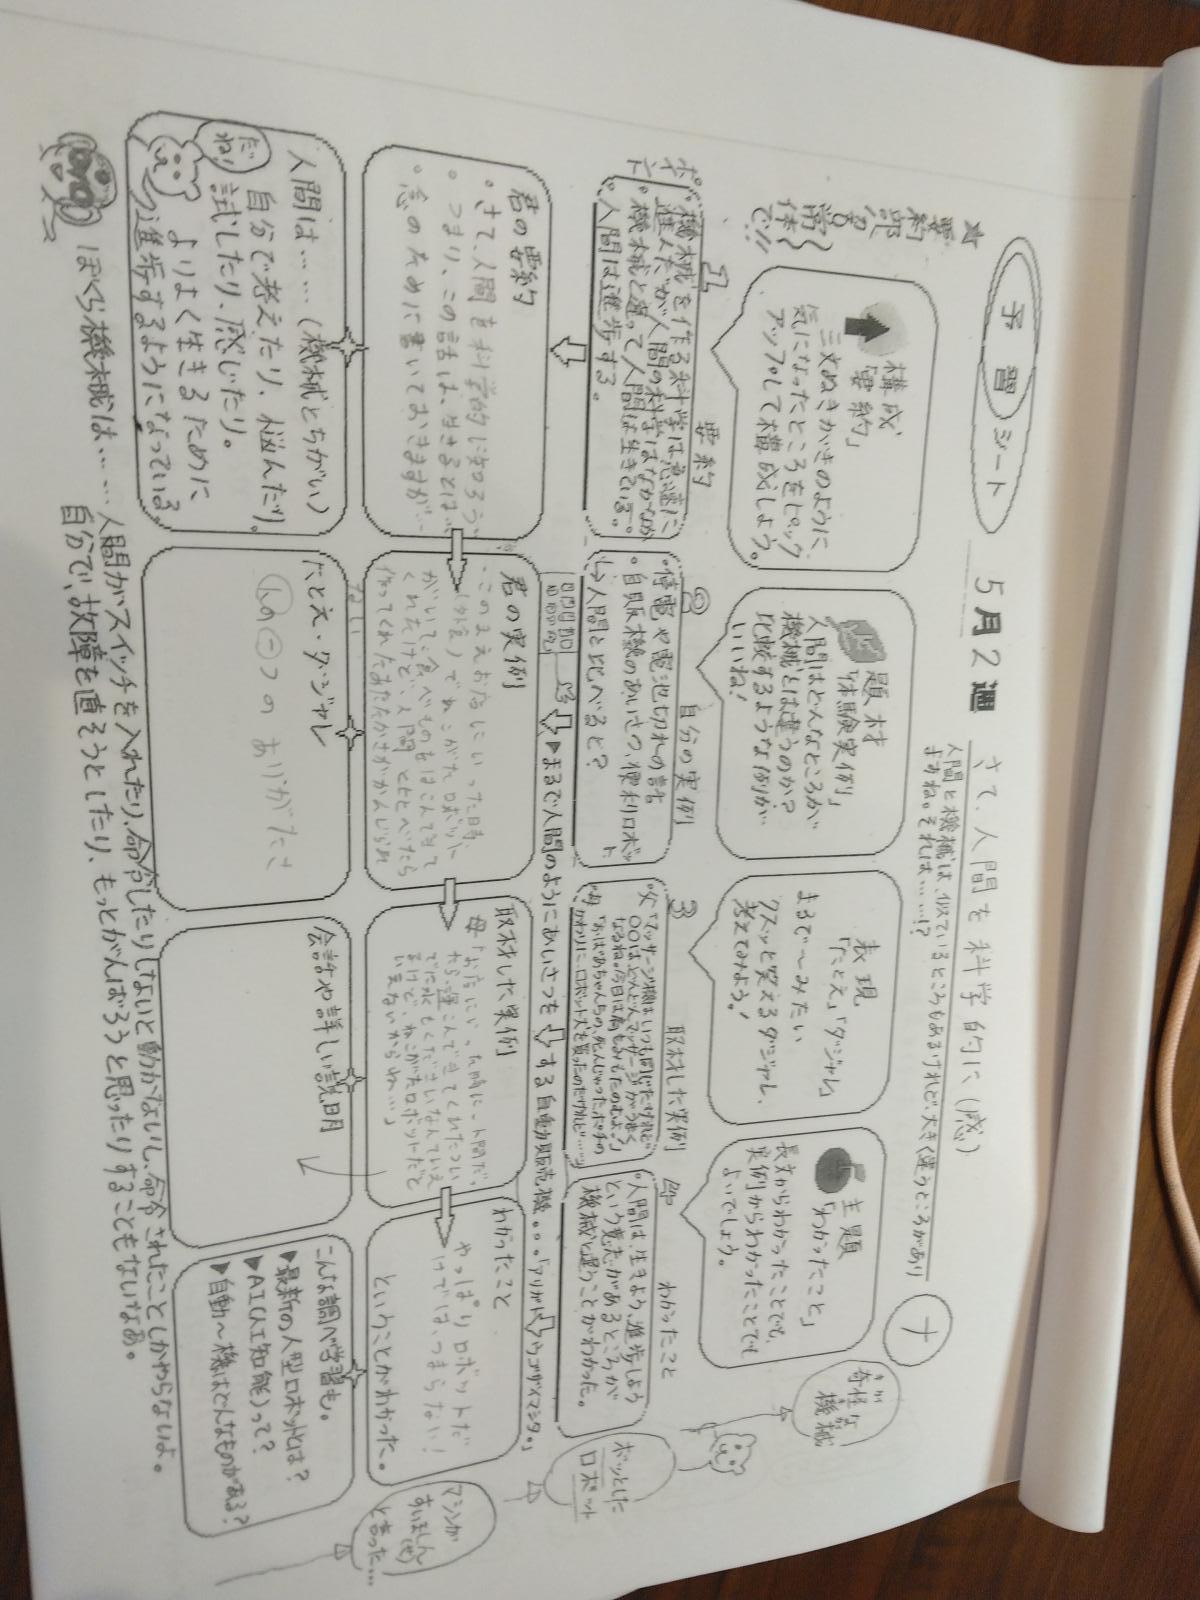 予習シート
5月2週
さて、人間を科学的に(感)
人間と機械は、似ているところもあるけれど、大きく違うところがあり
ますね。それは……!?
★要約部
常体で!!
構成
「要約」
三文ぬきがきのように
気になったところをピック
アップして構成しよう。
題材
「体験実例」
人間はどんなところが
機械とは違うのか?
比較するような例が
いいね!
表現
「たとえ」「ダジャレ」
まるで〜みたい
クスッと笑えるダジャレ、
考えてみよう!
主題
「わかったこと」
長文からわかったことでも、
実例からわかったことでも
よいでしょう。
奇怪な
機械
ポイント
1
要約
・機械を作る科学は急速に
進んだが、人間の科学はなかなか
・機械と違って人間は生きている。
・人間は進歩する。
2
自分の実例
・停電や電池切れの話
・自販機のあいさつ、便利ロボット
↳人間と比べると?
3
取材した実例
父「マッサージ機はいつも同じだけれど
〇〇はどんどんマッサージがうまく
なるね。今日は肩もみもたのむよ。」
母「おばあちゃんちの、死んじゃったポチの
かわりに、ロボット犬を買ったのだけれど……」
4
わかったこと
・人間は、生きよう、進歩しよう
という意志があるところが
機械と違うことがわかった。
ボッとした
ロボット
▶まるで人間のようにあいさつをする自動販売機。。。「アリガトウゴザイマシタ。」
君の要約
・さて、人間を科学的に知ろう、
・つまり、この話は、生きるとは…
・念のために書いておきますが…
君の実例
・このまえお店にいった時、
(外食)でねこがたロボットに
がいて、食べものをはこんできて
くれたけど、人間とくらべたら
作ってくれたあたたかさがかんじられ
ない
取材した実例
母「お店にいった時に、人間だっ
たら、運こんできてくれたつい
でに水もくださいなんていえ
るけど、ねこがたロボットだと
いえないからね…。」
わかったこと
やっぱりロボットだ
けでは、つまらない!
ということがわかった。
マシンが
すいましん(せん)
と言った…
人間は……(機械とちがい)
自分で考えたり、悩んだり。
試したり、感じたり。
よりよく生きるために
進歩するようになっている
だね!
たとえ・ダジャレ
人の一つのありがたさ
会話や詳しい説明
こんな調べ学習も。
▶最新の人型ロボットは?
▶AI(人工知能)って?
▶自動〜機はどんなものがある?
ぼくら機械は……人間がスイッチを入れたり、命令したりしないと動かないし、命令されたことしかやらないよ。
自分で、故障を直そうとしたり、もっとがんばろうと思ったりすることもないなあ。